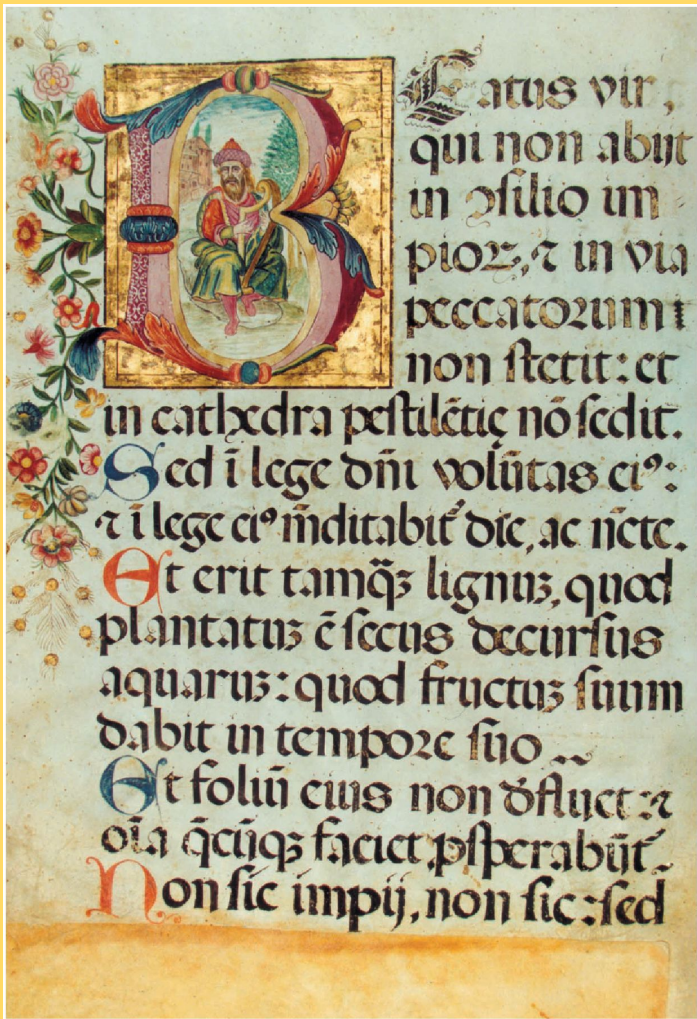 Beatus vir,
qui non abijt
in ꝯsilio im
pioꝝ, ⁊ in via
peccatorum
non stetit: et
in cathedra pestilẽtię nõ sedit.
Sed ĩ lege dñi volũtas eiꝰ:
⁊ ĩ lege eiꝰ m̃ditabit̃ die, ac ñcte.
Et erit tamq̃ȝ lignuȝ, quod
plantatuȝ ẽ secus decursus
aquaruȝ: quod fructuȝ suum
dabit in tempore suo
Et foliũ eius non d̃fluet: ⁊
oĩa q̃cũqȝ faciet ꝓsperabũt̃.
Non sic impij, non sic: sed